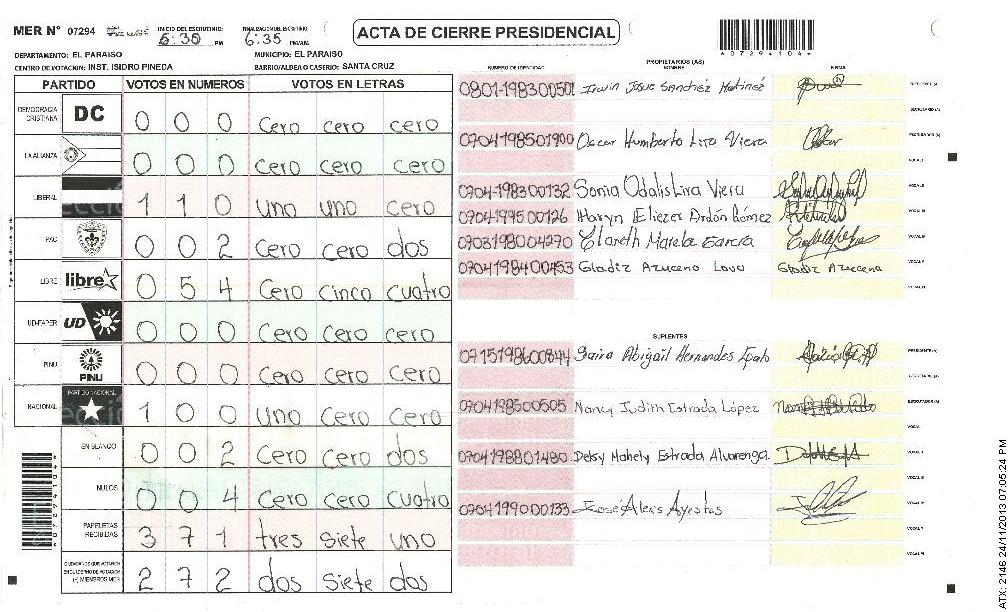 MER Nº 07294
INICIO DEL ESCRUTINIO:
5:30 PM
FINALIZACION DEL ESCRUTINIO:
6:35 PM/AM.
ACTA DE CIERRE PRESIDENCIAL
07294104
DEPARTAMENTO: EL PARAISO
MUNICIPIO: EL PARAISO
CENTRO DE VOTACION: INST. ISIDRO PINEDA
BARRIO/ALDEA O CASERIO: SANTA CRUZ
PARTIDO VOTOS EN NUMEROS VOTOS EN LETRAS
DEMOCRACIA CRISTIANA DC 0 0 0 cero cero cero
LA ALIANZA 0 0 0 cero cero cero
LIBERAL 1 1 0 uno uno cero
PAC 0 0 2 Cero Cero dos
LIBRE libre 0 5 4 Cero cinco cuatro
UD-FAPER UD 0 0 0 Cero Cero cero
PINU PINU 0 0 0 cero cero cero
NACIONAL PARTIDO NACIONAL 1 0 0 uno Cero cero
EN BLANCO 0 0 2 Cero Cero dos
NULOS 0 0 4 Cero cero cuatro
PAPELETAS RECIBIDAS 3 7 1 tres siete uno
CIUDADANOS QUE VOTARON EN CUADERNO DE VOTACION (+) MIEMBROS MER 2 7 2 dos siete dos
NUMERO DE IDENTIDAD
PROPIETARIOS (AS)
NOMBRE
FIRMA
0801-198300501 Irwin Josue Sanchez Matinez PRESIDENTE (A)
SECRETARIO (A)
0704198501900 Oscar Humberto Lira Viera ESCRUTADOR (A)
VOCAL I
0704-198300132 Sonia Odalis Lira Viera VOCAL II
0704199500126 Haryn Eliezer Ardón Gómez VOCAL III
0703198004270 Clareth Mariela Garcia VOCAL IV
0704198400453 Gladiz Azuceno Lova Gladiz Azucena VOCAL V
VOCAL VI
SUPLENTES
0715198600844 Saira Abigail Hernandes PRESIDENTE (A)
SECRETARIO (A)
0704198500505 Nancy Judith Estrada López ESCRUTADOR (A)
VOCAL I
0704198801480 Deisy Mahely Estrada Alvarenga VOCAL II
VOCAL III
0704199000133 José Alexis Ayestas VOCAL IV
VOCAL V
VOCAL VI
07294104
ATX: 2146 24/11/2013 07:05:24 PM